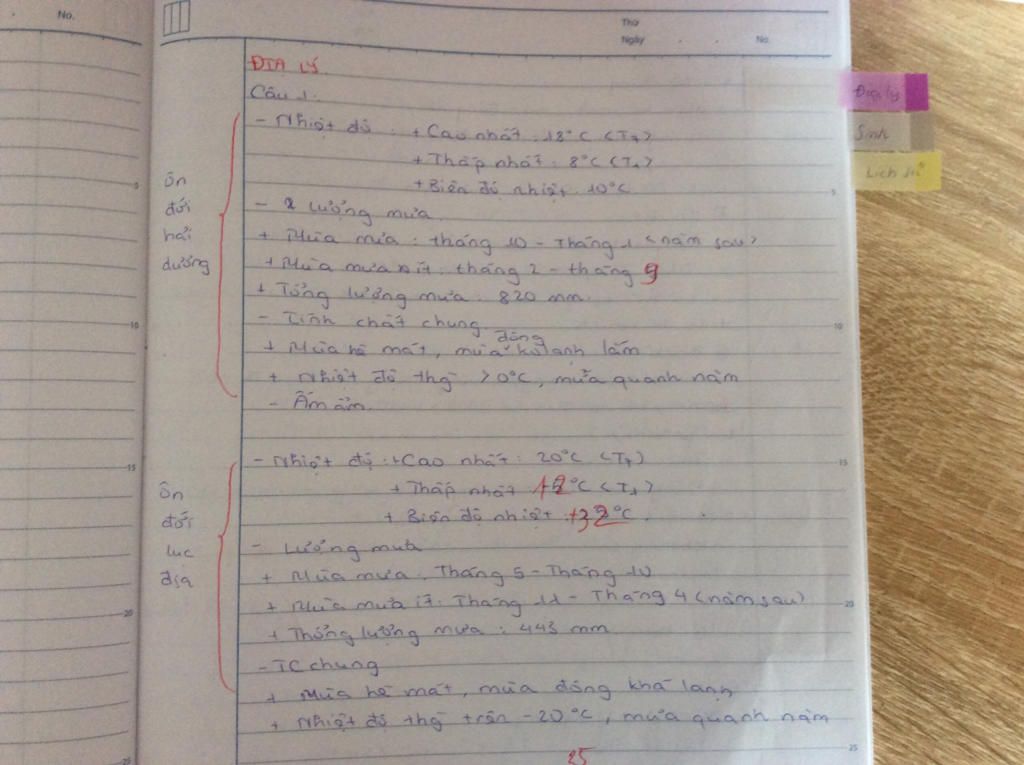 No.
Thứ
Ngày . . No.
ĐỊA LÝ
Câu 1:
- Nhiệt độ: + Cao nhất: 18°C (T7)
+ Thấp nhất: 8°C (T1)
+ Biên độ nhiệt: 10°C
- Lượng mưa
+ Mùa mưa: tháng 10 - Tháng 1 (năm sau)
+ Mùa mưa ít: tháng 2 - tháng 9
+ Tổng lượng mưa: 820 mm.
- Tính chất chung
+ Mùa hè mát, mùa đông ko lạnh lắm
+ Nhiệt độ thg > 0°C, mưa quanh năm
- Ấm ẩm.
ôn
đới
hải
dương
- Nhiệt độ: + Cao nhất: 20°C (T7)
+ Thấp nhất: -12°C (T1)
+ Biên độ nhiệt: +32°C.
- Lượng mưa
+ Mùa mưa: Tháng 5 - Tháng 10
+ Mùa mưa ít: Tháng 11 - Tháng 4 (năm sau)
+ Thổng lượng mưa: 443 mm
- TC chung
+ Mùa hè mát, mùa đông khá lạnh
+ Nhiệt độ thg trên -20°C, mưa quanh năm
ôn
đới
lục
địa
25
Địa lý
Sinh
Lịch sử
5
10
15
20
25
5
10
15
20
25